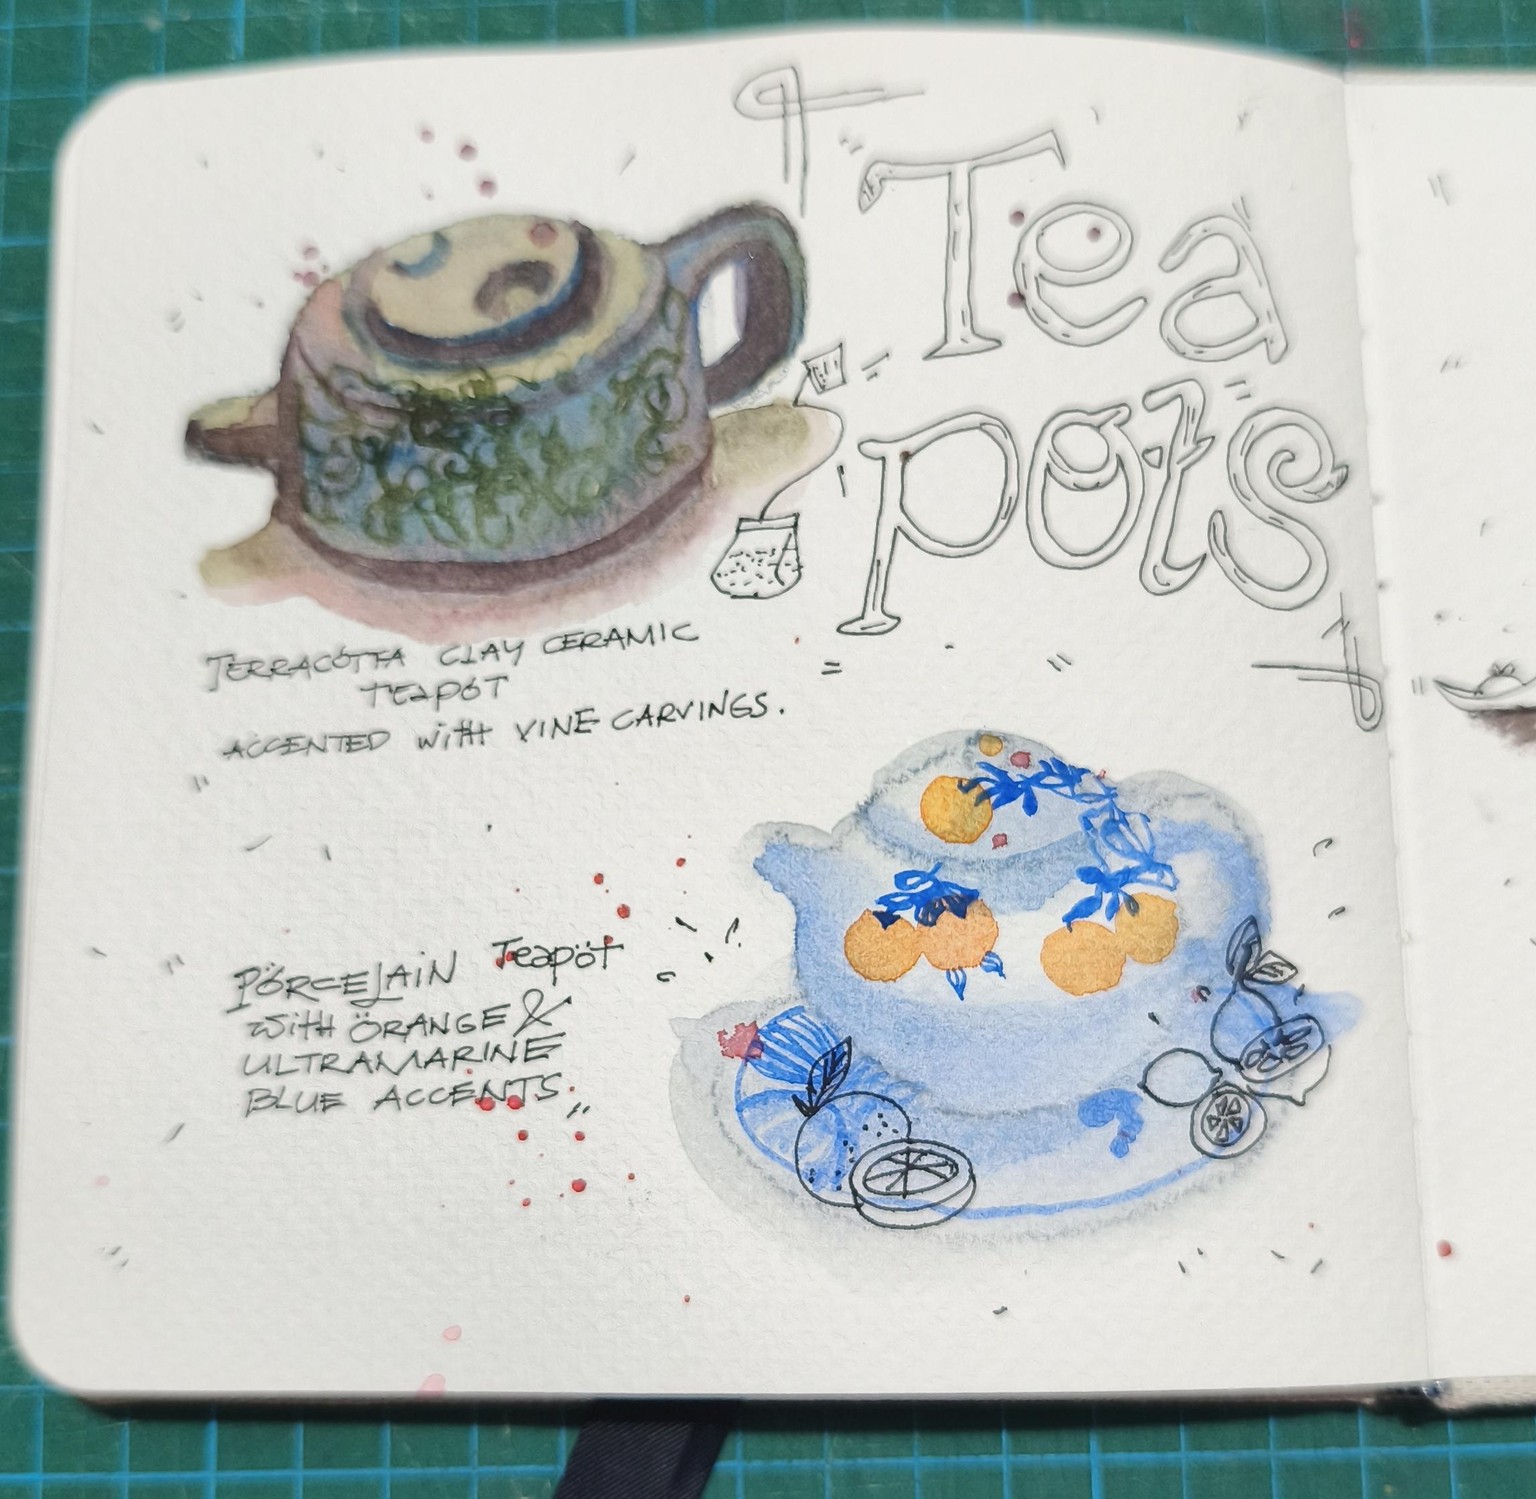 Tea
pots
TERRACOTTA CLAY CERAMIC
TEAPOT
ACCENTED with VINE CARVINGS.
PÖRCELAIN Teapöt
with ÖRANGE &
ULTRAMARINE
BLUE ACCENTS.